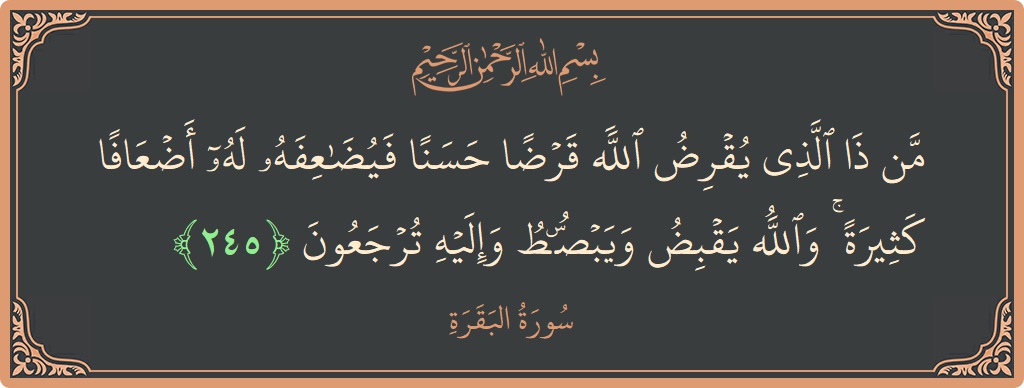 بِسْمِ اللَّهِ الرَّحْمَٰنِ الرَّحِيمِ
مَّن ذَا ٱلَّذِى يُقْرِضُ ٱللَّهَ قَرْضًا حَسَنًا فَيُضَـٰعِفَهُۥ لَهُۥٓ أَضْعَافًا
كَثِيرَةً ۚ وَٱللَّهُ يَقْبِضُ وَيَبْصُۜطُ وَإِلَيْهِ تُرْجَعُونَ ﴿٢٤٥﴾
سُورَةُ البَقَرَةِ